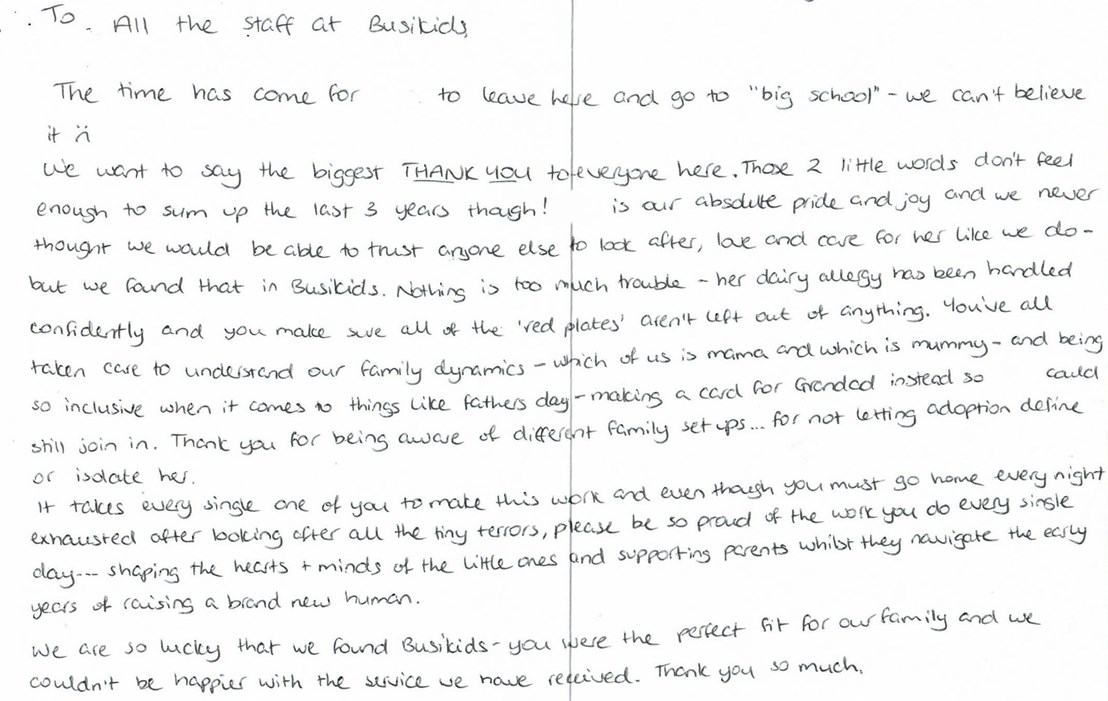 To. All the staff at Busikids
The time has come for to leave here and go to "big school" - we can't believe
it :(
We want to say the biggest THANK YOU to everyone here. Those 2 little words don't feel
enough to sum up the last 3 years though! is our absolute pride and joy and we never
thought we would be able to trust anyone else to look after, love and care for her like we do -
but we found that in Busikids. Nothing is too much trouble - her dairy allergy has been handled
confidently and you make sure all of the 'red plates' aren't left out of anything. You've all
taken care to understand our family dynamics - which of us is mama and which is mummy - and being
so inclusive when it comes to things like fathers day - making a card for Grandad instead so could
still join in. Thank you for being aware of different family set ups... for not letting adoption define
or isolate her.
It takes every single one of you to make this work and even though you must go home every night
exhausted after looking after all the tiny terrors, please be so proud of the work you do every single
day--- shaping the hearts + minds of the little ones and supporting parents whilst they navigate the early
years of raising a brand new human.
We are so lucky that we found Busikids - you were the perfect fit for our family and we
couldn't be happier with the service we have received. Thank you so much.